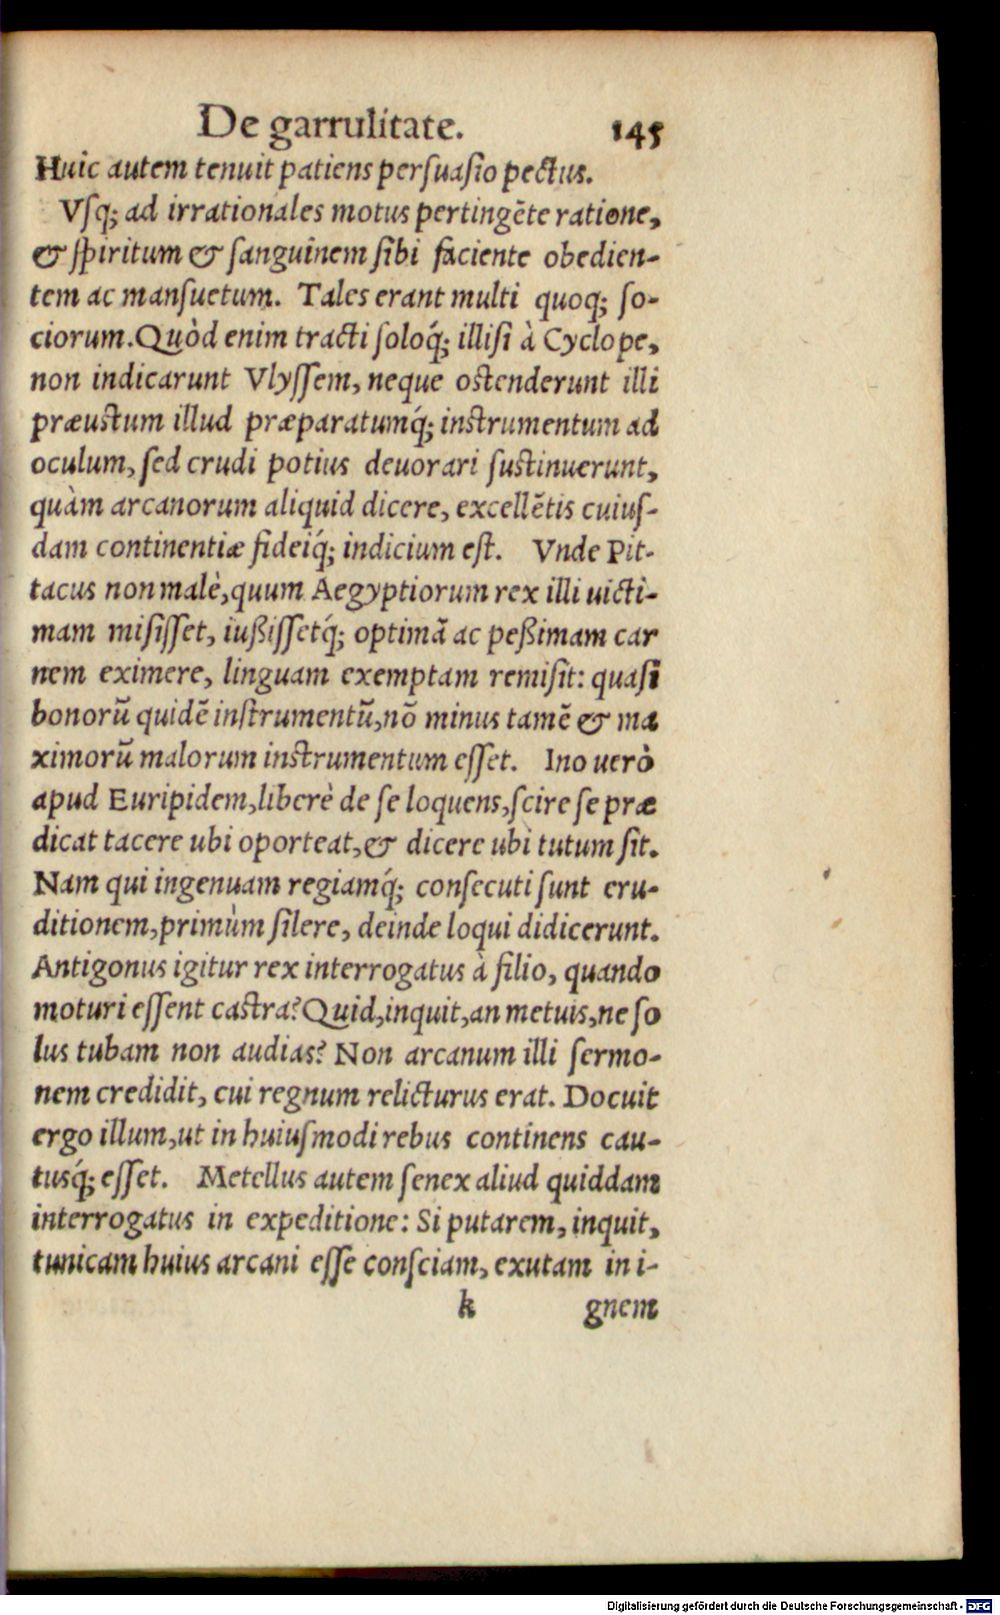 De garrulitate. 145
Huic autem tenuit patiens persuasio pectus.
Vsq; ad irrationales motus pertingēte ratione,
& spiritum & sanguinem sibi faciente obedien-
tem ac mansuetum. Tales erant multi quoq; so-
ciorum. Quòd enim tracti soloq́; illisi à Cyclope,
non indicarunt Vlyssem, neque ostenderunt illi
præustum illud præparatumq́; instrumentum ad
oculum, sed crudi potius deuorari sustinuerunt,
quàm arcanorum aliquid dicere, excellētis cuius-
dam continentiæ fideiq́; indicium est. Vnde Pit-
tacus non malè, quum Aegyptiorum rex illi uicti-
mam misisset, iußissetq́; optimā ac peßimam car
nem eximere, linguam exemptam remisit: quasi
bonorū quidē instrumentū, nō minus tamē & ma
ximorū malorum instrumentum esset. Ino uerò
apud Euripidem, liberè de se loquens, scire se præ
dicat tacere ubi oporteat, & dicere ubi tutum sit.
Nam qui ingenuam regiamq́; consecuti sunt eru-
ditionem, primùm silere, deinde loqui didicerunt.
Antigonus igitur rex interrogatus à filio, quando
moturi essent castra? Quid, inquit, an metuis, ne so
lus tubam non audias? Non arcanum illi sermo-
nem credidit, cui regnum relicturus erat. Docuit
ergo illum, ut in huiusmodi rebus continens cau-
tusq́; esset. Metellus autem senex aliud quiddam
interrogatus in expeditione: Si putarem, inquit,
tunicam huius arcani esse consciam, exutam in i-
k gnem
Digitalisierung gefördert durch die Deutsche Forschungsgemeinschaft - DFG